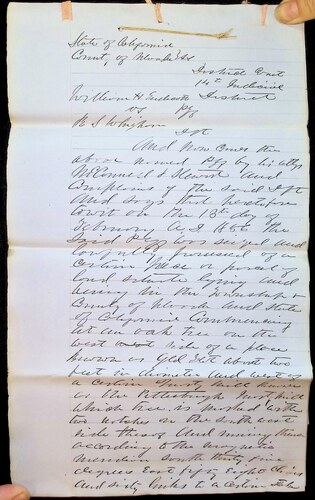 State of California
County of Nevada } ss
District Court
14th Judicial
District
William H
Plff
vs
Dft
And now comes the
above named Plff by his attys
McConnell & and
complains of the said Dft
and says that heretofore
to wit on the 13th day of
February A D 185 the
said Plff was seized and
lawfully possessed of a
certain piece or parcel of
land situate lying and
being in the Township &
County of Nevada and State
of California Commencing
at an oak tree on the
west side of a place
known as Gold Flat about two
feet in diameter and west of
a certain Quartz mill known
as the Pittsburgh Quartz mill
which tree is marked with
two notches on the south west
side thereof and running thence
according to the magnetic
meridian south thirty five
degrees East fifty eight chains
and sixty links to a certain